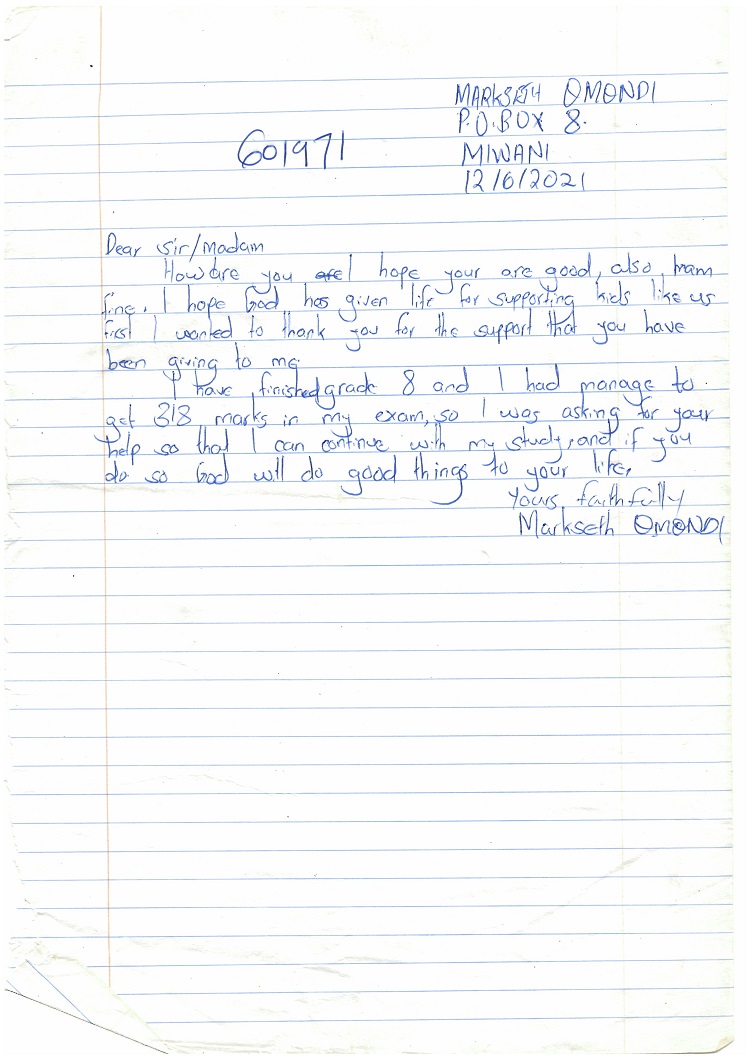 MARKSETH OMONDI
P.O.BOX 8.
601971
MIWANI
12/6/2021
Dear Sir/Madam
How are you are I hope your are good, also, Iram
fine. I hope God has given life for supporting kids like us
first I wanted to thank you for the support that you have
been giving to me.
I have finished grade 8 and I had manage to
get 318 marks in my exam, so I was asking for your
help so that I can continue with my study, and if you
do so God will do good things to your life.
Yours faithfully
Markseth OMONDI